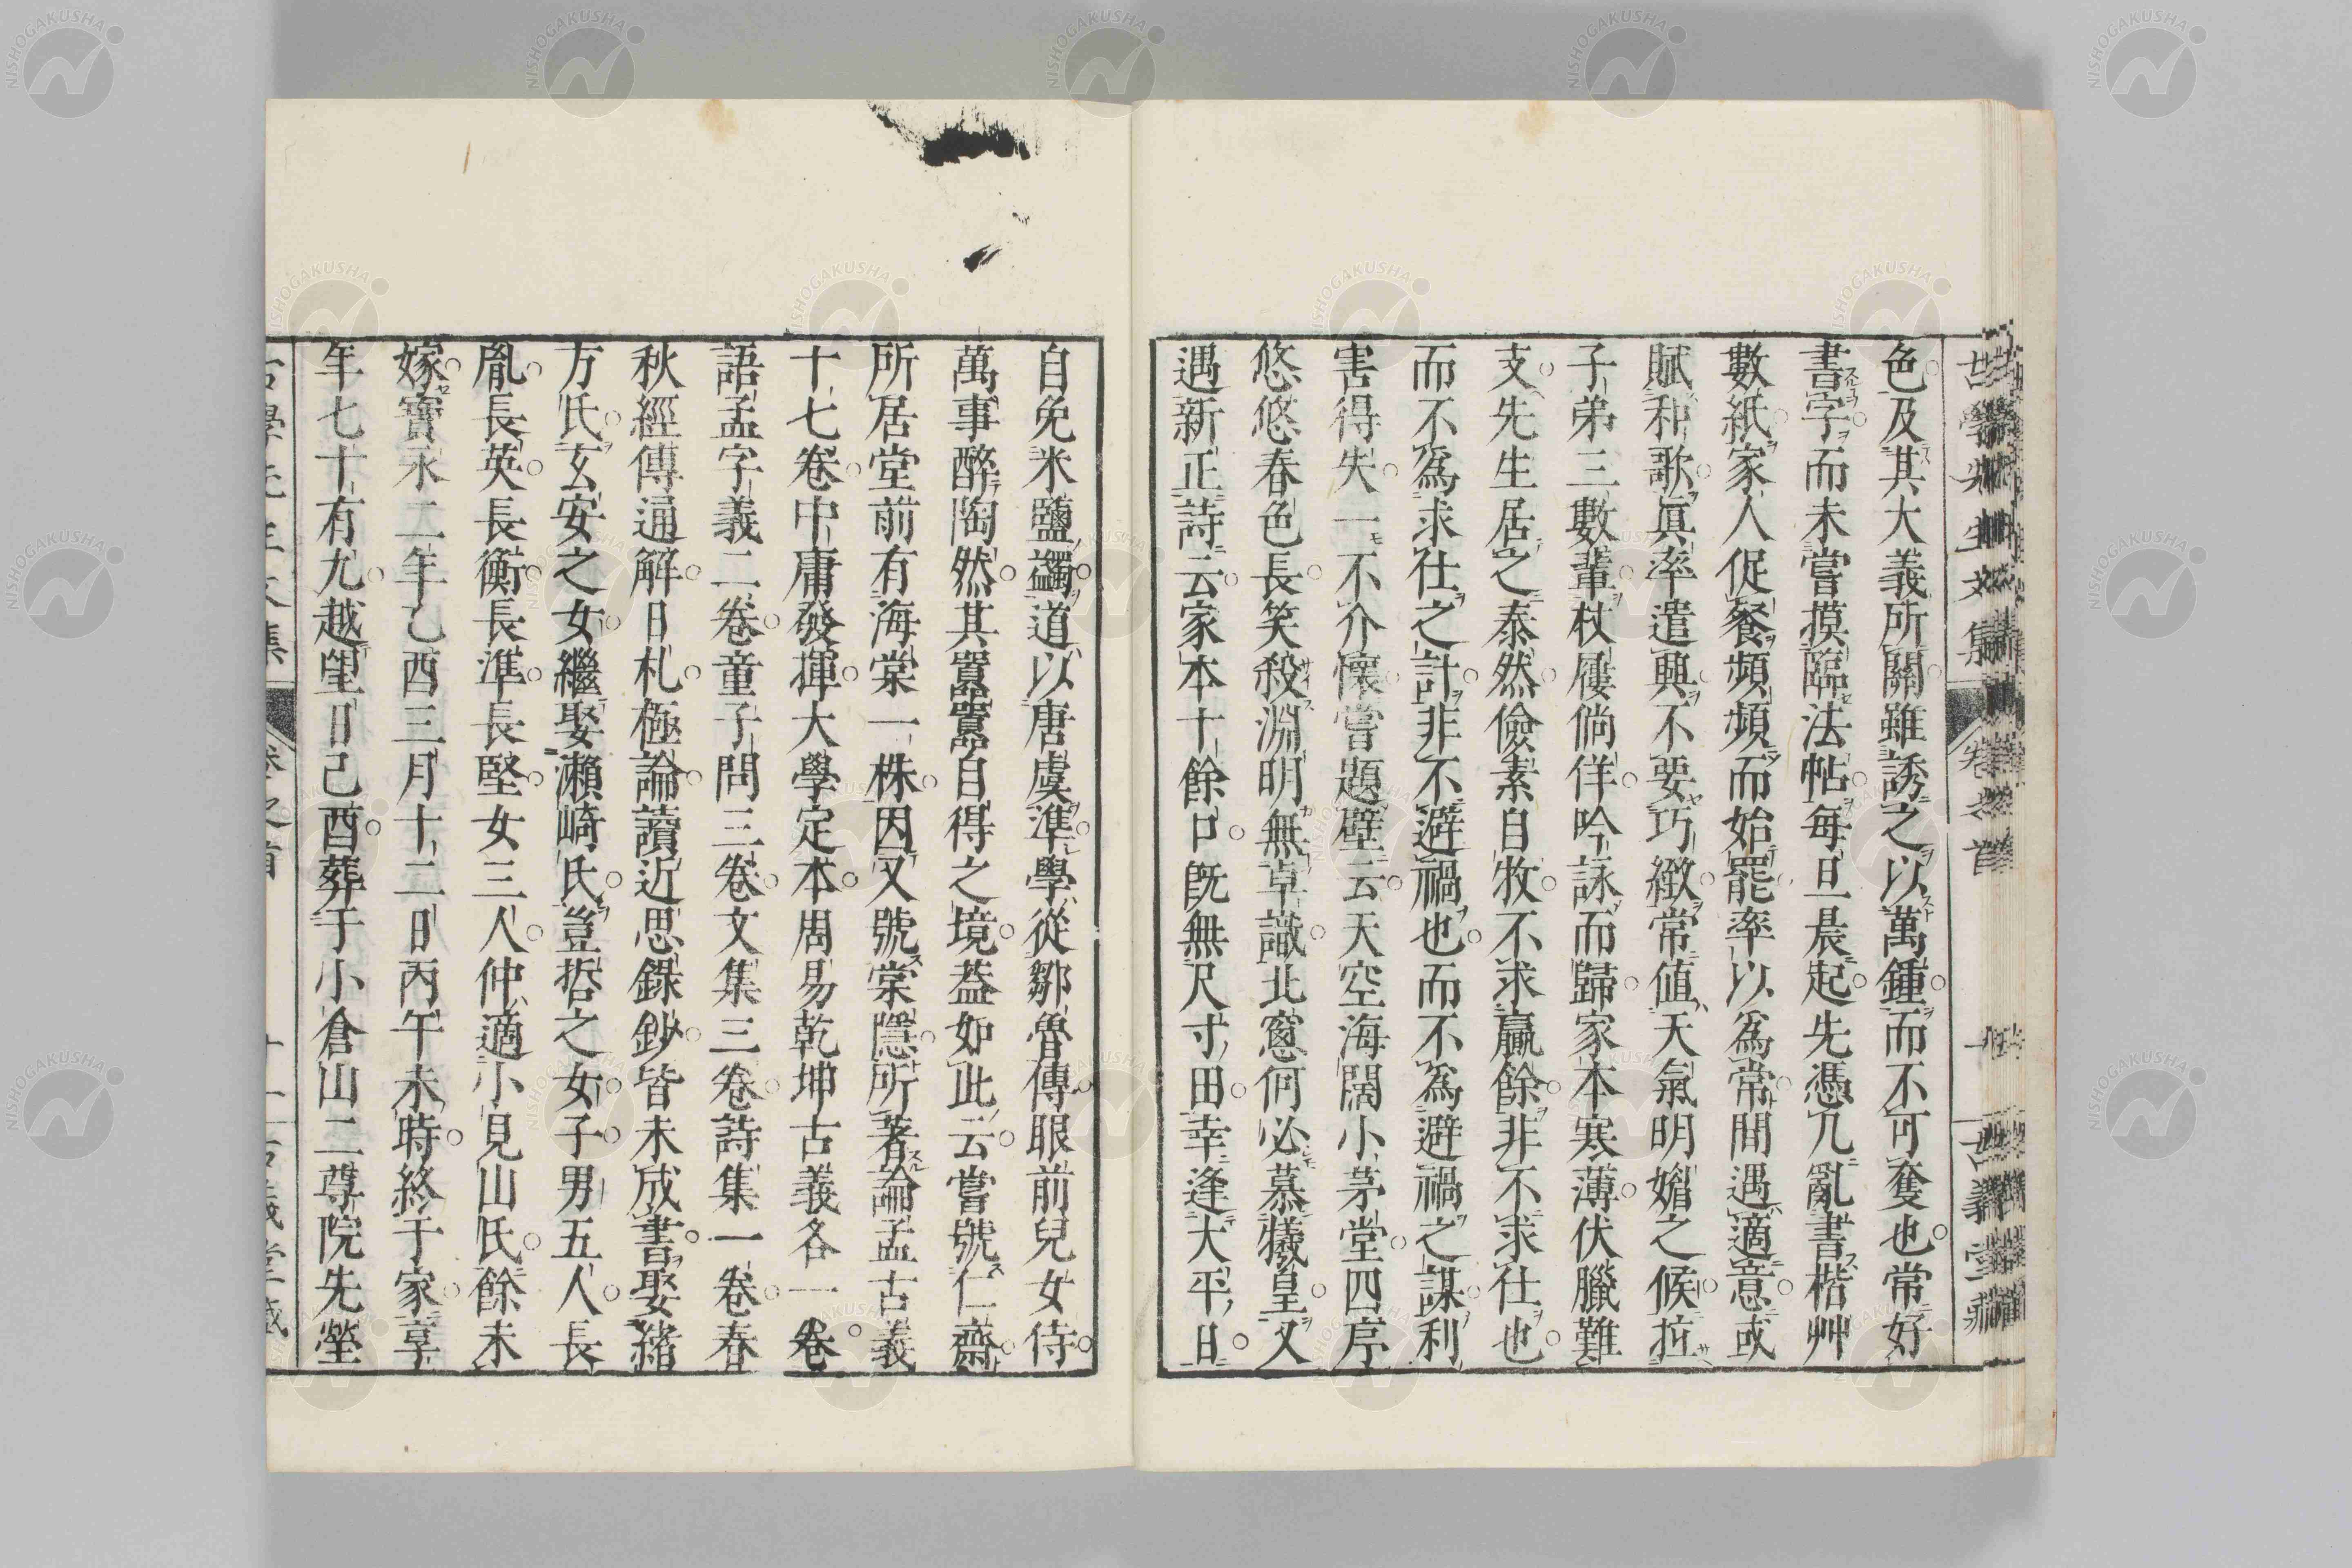 色及其大義所關雖誘之以萬鍾而不可奪也常好
書字而未嘗摸臨法帖每旦晨起先憑几亂書楷艸
數紙家人促餐頻頻而始罷率以爲常間遇適意或
賦和歌眞率遣興不要巧緻常値天氣明媚之候拉
子弟三數輩杖屨倘佯吟詠而歸家本寒薄伏臘難
支先生居之泰然儉素自牧不求贏餘非不求仕也
而不爲求仕之計非不避禍也而不爲避禍之謀利
害得失一不介懷嘗題壁云天空海闊小茅堂四序
悠悠春色長笑殺淵明無卓識北窓何必慕犧皇又
遇新正詩云家本十餘口既無尺寸田幸逢大平日
自免米鹽蠲道以唐虞準學從鄒魯傳眼前兒女侍
萬事醉陶然其嚣嚣自得之境葢如此云嘗號仁齋
所居堂前有海棠一株因又號棠隱所著論孟古義
十七卷中庸發揮大學定本周易乾坤古義各一卷
語孟字義二卷童子問三卷文集三卷詩集一卷春
秋經傳通解日札極論讀近思錄鈔皆未成書娶緒
方氏玄安之女繼娶瀨崎氏豈哲之女子男五人長
胤長英長衡長準長堅女三人仲適小見山氏餘未
嫁寶永二年乙酉三月十二日丙午未時終于家享
年七十有九越望日己酉葬于小倉山二尊院先塋
古學先生文集 卷之首 古義堂藏